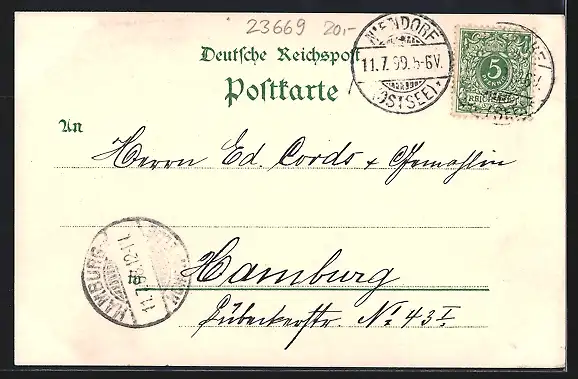 23669 20,-
Deutsche Reichspost
Postkarte
NIENDORF
11.7.99.5-6V.
(OSTSEE)
5
PFENNIG
REICHSPOST
An
Herrn Ed. Cords & Gemahlin
HAMBURG
11.7.99.12-1
in Hamburg
Lübeckerstr. No. 43 I